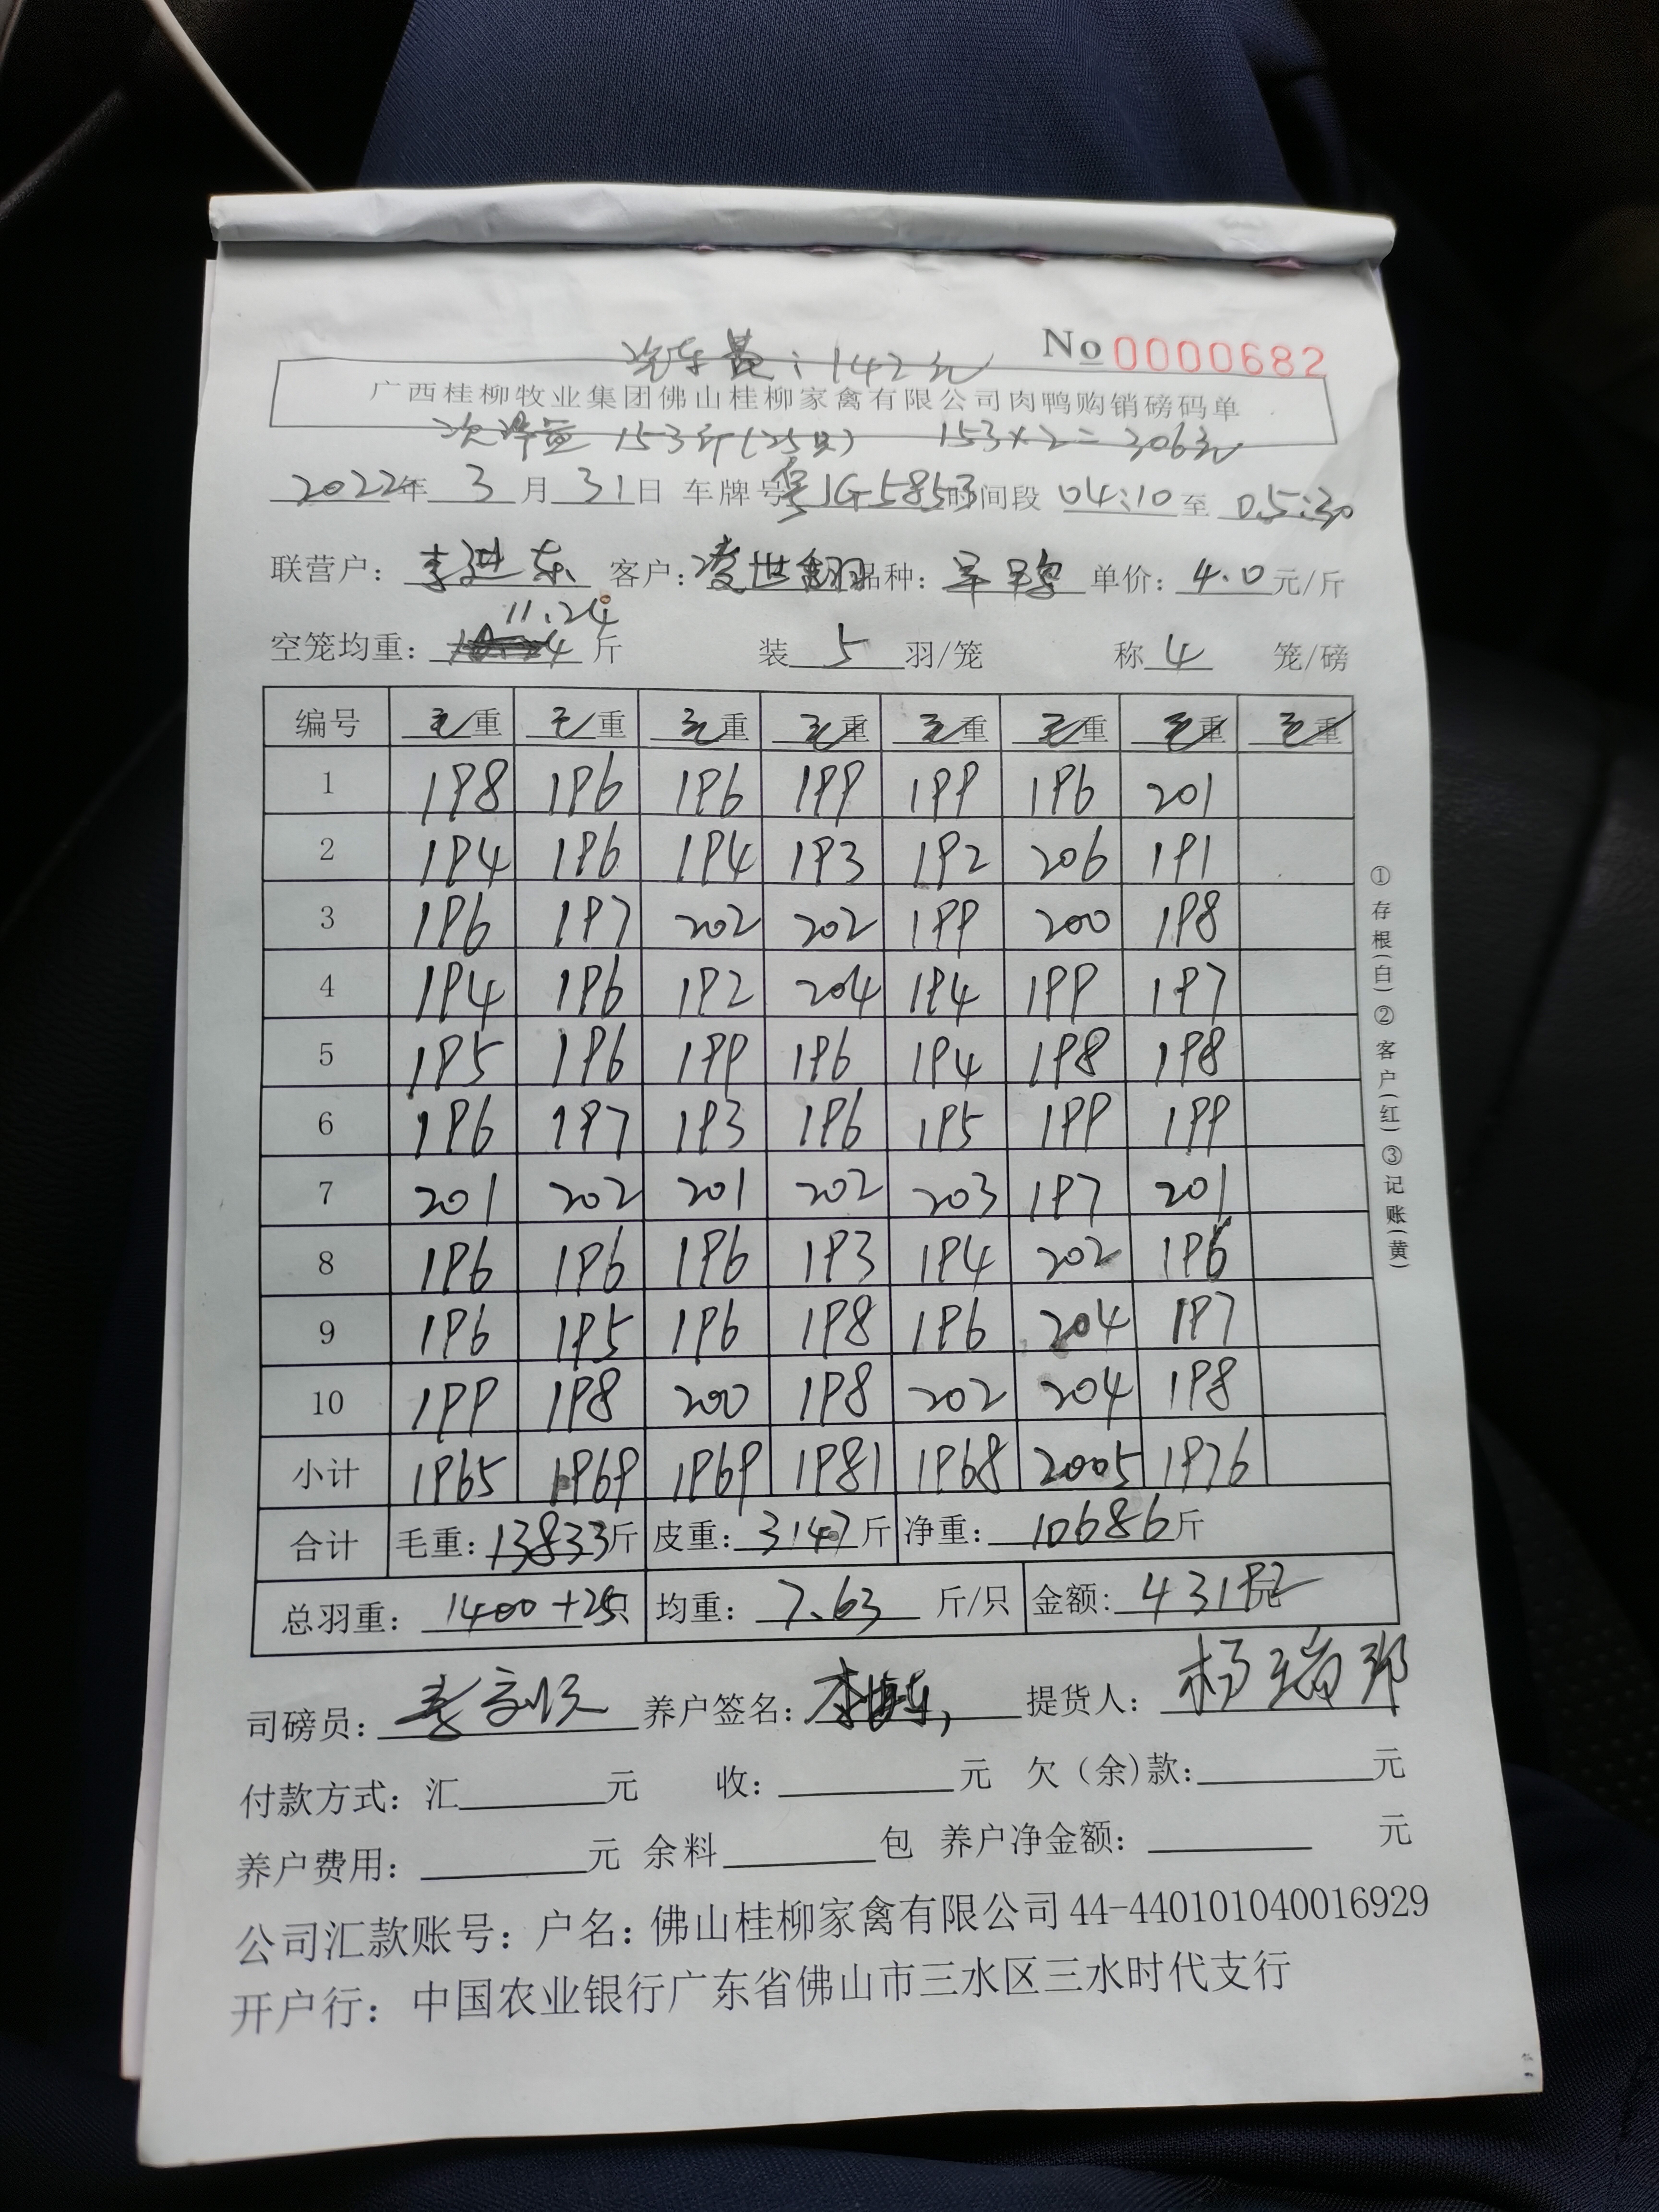 No 0000682
洗车费:142元
广西桂柳牧业集团佛山桂柳家禽有限公司肉鸭购销磅码单
次净重 153斤(25只) 153×2=306元
2022年 3 月 31 日 车牌号 粤JG5853 时间段 04:10 至 05:30
联营户: 李进东 客户: 凌世翻 品种: 单价: 4.0 元/斤
空笼均重: 11.24 斤 装 5 羽/笼 称 4 笼/磅
编号 毛重 毛重 毛重 毛重 毛重 毛重 毛重 毛重
1 198 196 196 199 199 196 201
2 194 196 194 193 192 206 191
3 196 197 202 202 199 200 198
4 194 196 192 204 194 199 197
5 195 196 199 196 194 198 198
6 196 197 193 196 195 199 199
7 201 202 201 202 203 197 201
8 196 196 196 193 194 202 196
9 196 195 196 198 196 204 197
10 199 198 200 198 202 204 198
小计 1965 1969 1969 1981 1968 2005 1976
合计 毛重: 13833 斤 皮重: 3147 斤 净重: 10686 斤
总羽重: 1400+25只 均重: 7.63 斤/只 金额: 43192元
司磅员: 养户签名: 提货人: 杨瑞邦
付款方式: 汇 元 收: 元 欠(余)款: 元
养户费用: 元 余料 包 养户净金额: 元
公司汇款账号: 户名: 佛山桂柳家禽有限公司 44-440101040016929
开户行: 中国农业银行广东省佛山市三水区三水时代支行
①存根(白)②客户(红)③记账(黄)